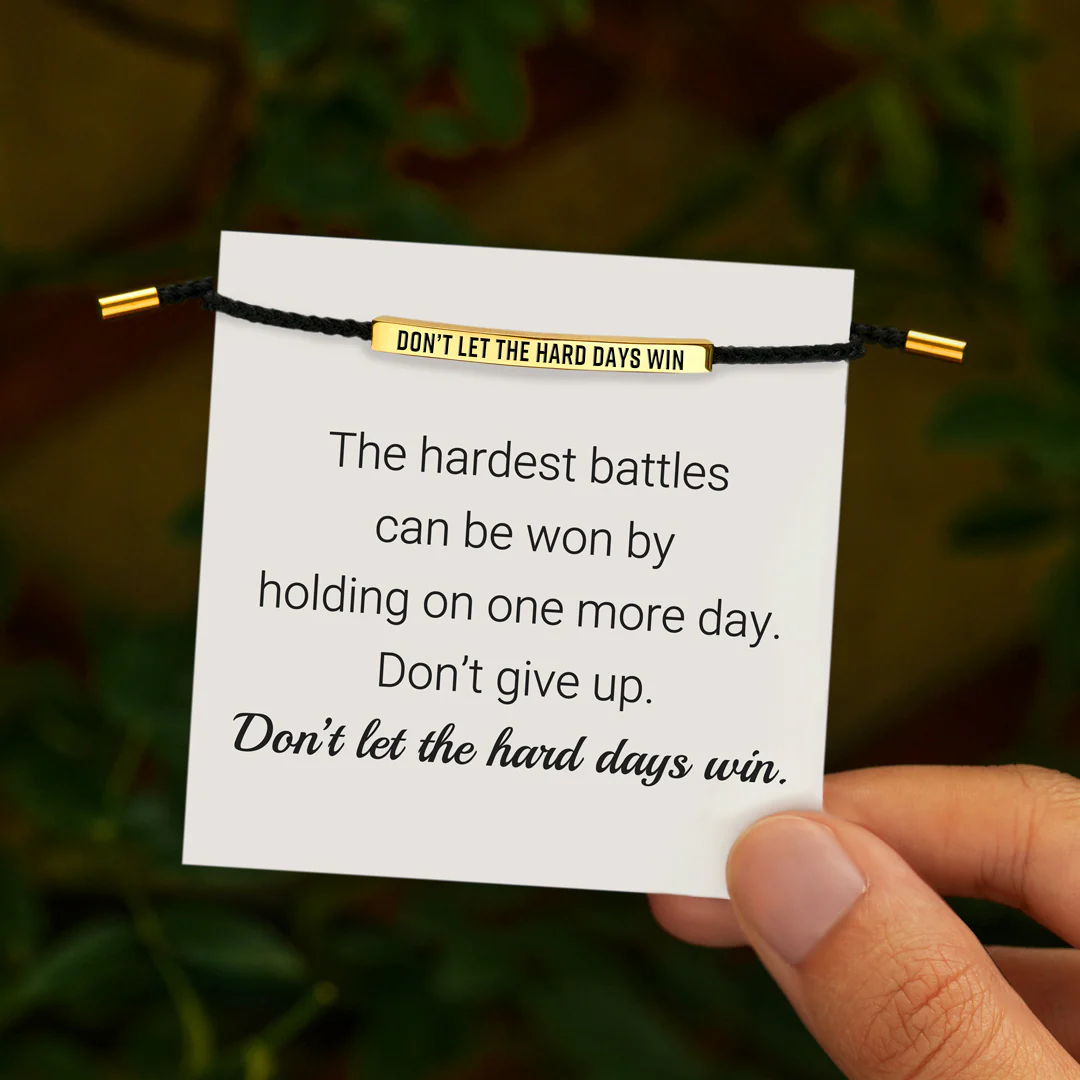 DON'T LET THE HARD DAYS WIN
The hardest battles
can be won by
holding on one more day.
Don't give up.
Don't let the hard days win.